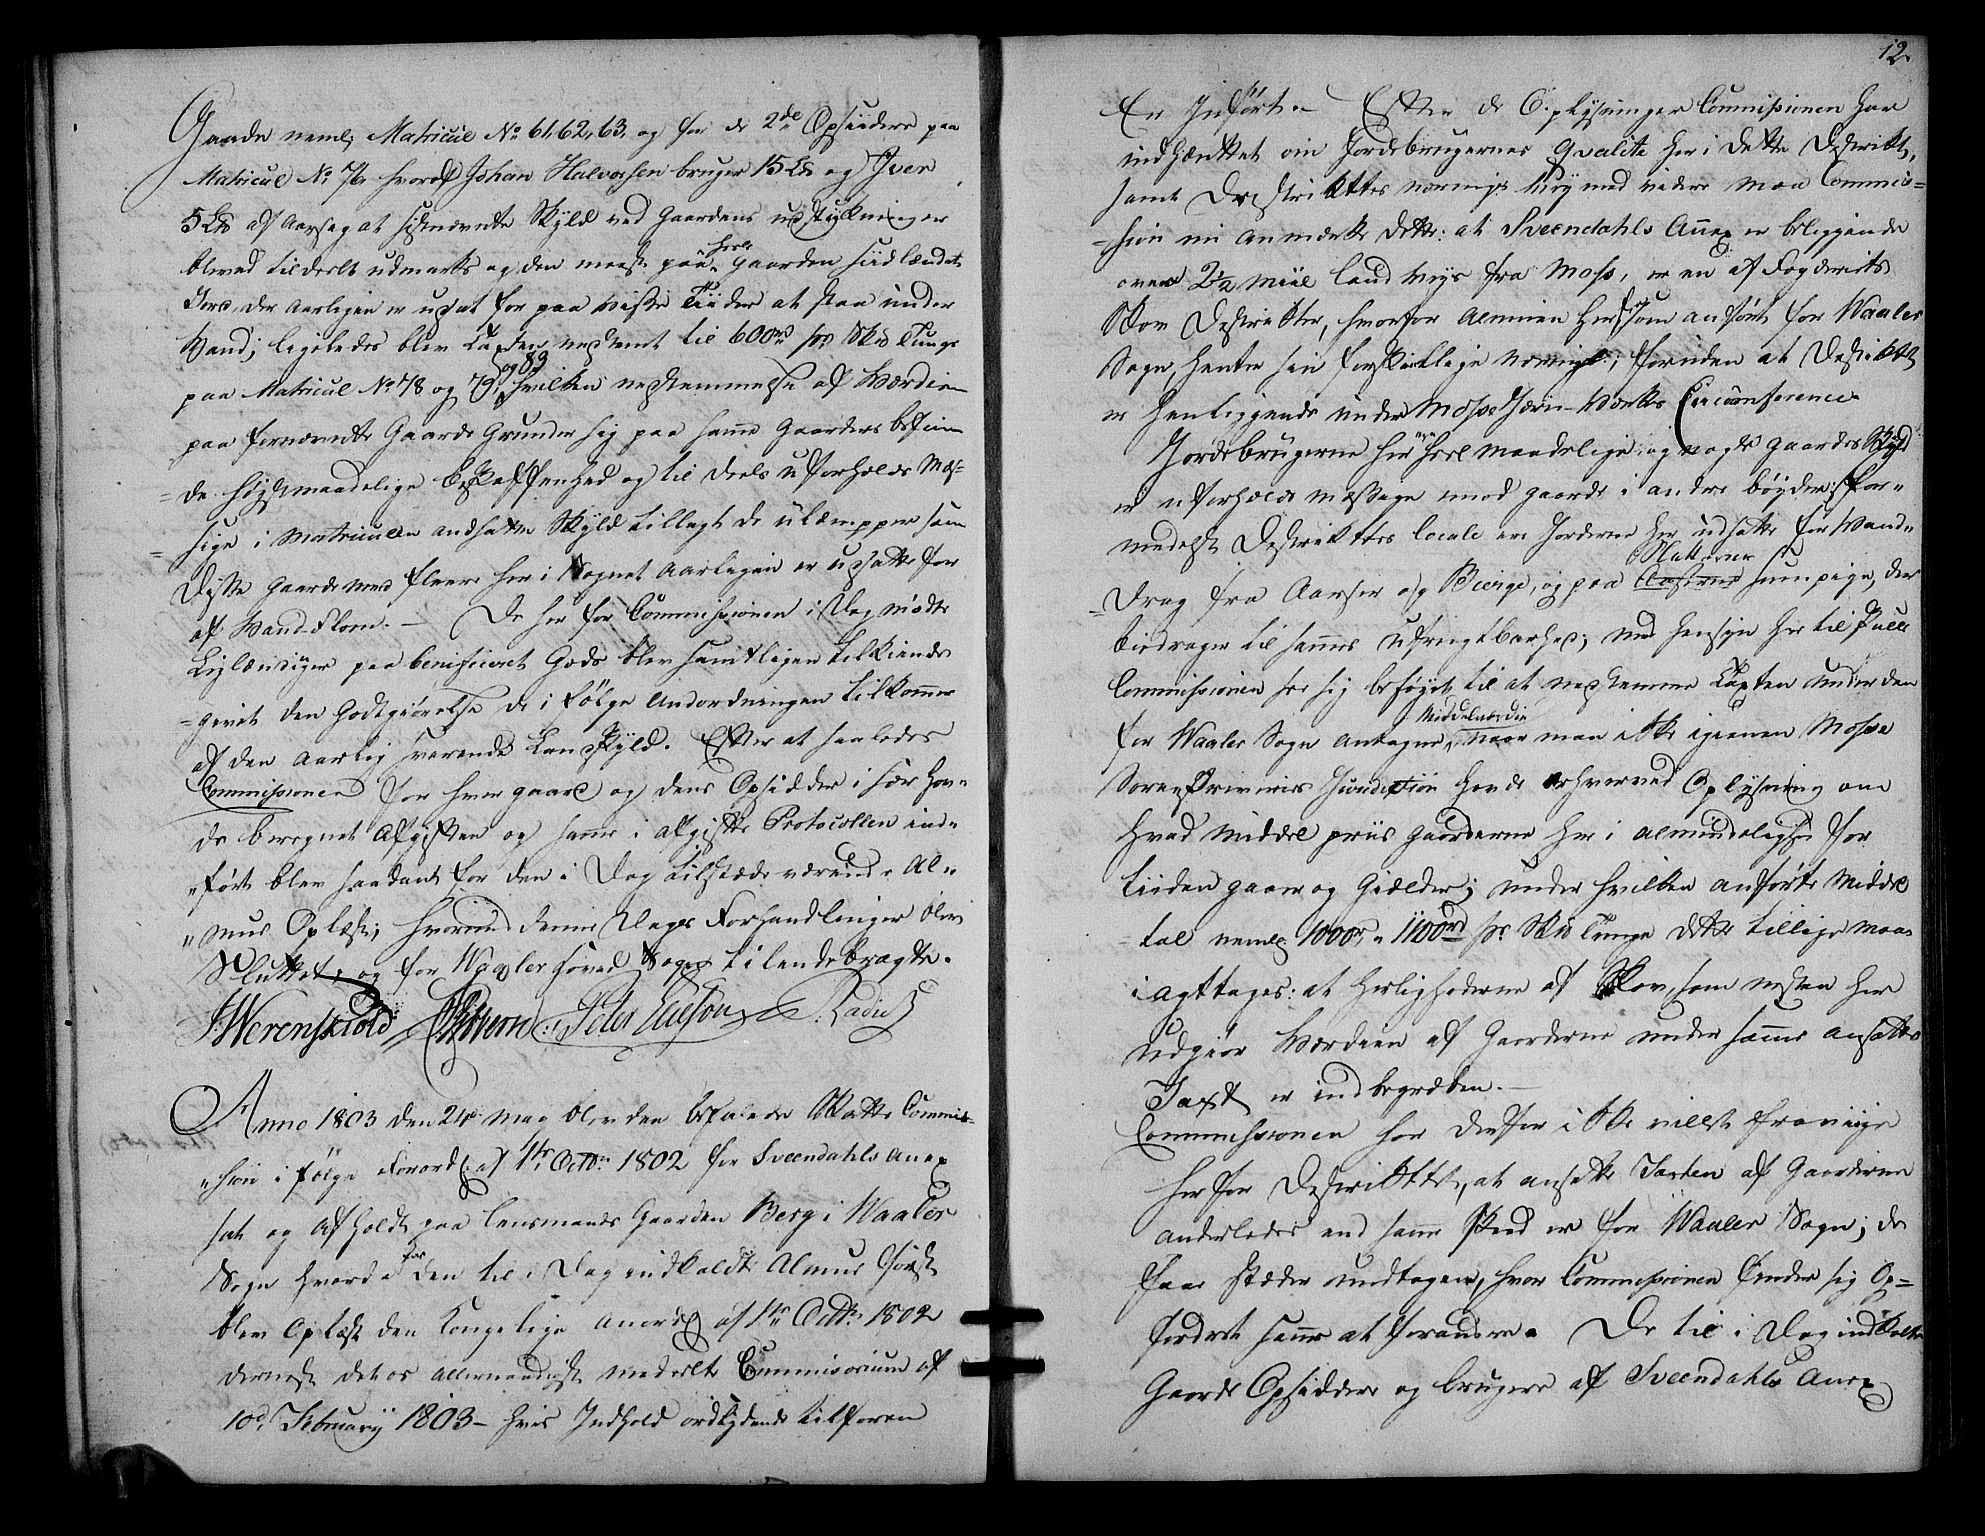 Gaarde neml: Matricul No 61, 62, 63, og for de 2de Opsiddere paa
Matricul No 76 hvoraf Johan Halvorsen bruger 15 Lb og Iver
5 Lb af Aarsag at sistnævnte Skyld ved Gaardens udstykning er
blevet tildeelt udmarks og den meest paa heele Gaarden sidlændte
Jord, der aarligen er udsat for paa visse Tiider at staa under
Vand; ligeledes blev Taxten nedstemt til 600rd pr Skd Tunge
paa Matricul No 78 og 79, og 83 hvilken nedstemmelse af Værdien
paa fornævnte Gaarde Grunder sig paa samme Gaarders befin=
=de høystmaadelige Beskaffenhed og til deels uforholds Mæs=
=sige i Matriculen andsatte Skyld tillagt de ulæmpper som
Disse Gaarde med fleere her i Sognet Aarligen er udsatte for
af Vand-Flom. — De her for Commissionen i Dag mødte
Leylændinger paa beneficeret Gods blev samtligen tilkiende
=givet den Godtgiørelse de i Følge Anordningen tilkommer
af den aarlig svarende Landskyld. Efter at saaledes
Commissionen for hver Gaard og dens Opsidder i sær hav=
de beregnet Afgiften og samme i afgifts Protocollen ind=
"ført blev saadant for den i Dag tilstædeværende Al=
"mue Oplæst; hvorved denne Dags Forhandlinger blev
Sluttet, og for Waaler hoved Sogn tilendebragte.
J. Werenskiold Peter Elieson Radich
Anno 1803 den 24de May blev den befalede Skatte Commis=
"sion i følge Forordg: af 1te Octbr: 1802 for Sveendahls Anex
sat og Afholdt paa Lensmands Gaarden Berg i Waaler
Sogn hvorda for den til i Dag indkaldte Almue først
blev Oplæst den Kongelige Anordg af 1te Octbr 1802
dernæst det os allernaadigst meddeelte Commissorium af
10d February 1803 — hvis Indhold ordlydende tilforn
12.
Er Indført. — Efter de Oplysninger Commissionen har
indhæntet om Jordebrugernes Qvalite her i dette Destrikt,
samt Destriktets nærings Evne med videre maa Commis=
=sion nu anmærke dette: at Sveendahls Annex er beliggende
over 2 1/2 Miil Land Veys fra Moss, er en af Fogderiets
Skov Destrikter, hvorfor Almuen her, som anført for Waaler
Sogn, henter sin forskiellige næring; foruden at Destriktet
er henliggende under Moss Jærn-Værks Circumference
Jordebrugerne her ere heel maadelige, og nogle Gaardes Skyld
er uforholds mæssige imod Gaarde i andre bøyder; for=
medelst Destriktets locale ere Jorderne her udsatte for Vand=
=drag fra Aasser og Bierge, og paa Sletterne sumpige, der
bidrager til sammes ufrugtbarhed; Med hensyn her til skulle
Commissionen see sig beføyet, til at nedstemme Taxten under den
for Waaler Sogn antagne, Middelværdie maa ikke igiennem Mosse
Sorenskriveries Jurisdiction havde erhvervet Oplysning om
hvad Middel priis Gaarderne her i almindelighed for
tiiden gaar og Gielder; under hvilken anførte Middel
=tal neml: 1000r, " 1100rd pr. Skd Tunge dette tillige maa
iagttages: at Herligheederne af Skov, som nesten her
udgiør Værdien af Gaarderne under samme ansatte
Taxt er indbegreben. —
Commissionen har derfor ikke villet fravige
her for Destriktet, at ansætte Taxten af Gaarderne
anderledes end samme skeed er for Waaler Sogn; de
faae stæder undtagen, hvor Commissionen finder sig Op=
fordret samme at forandre. De til i Dag indkaldte
Gaarde Opsiddere og brugere af Sveendahls Anex